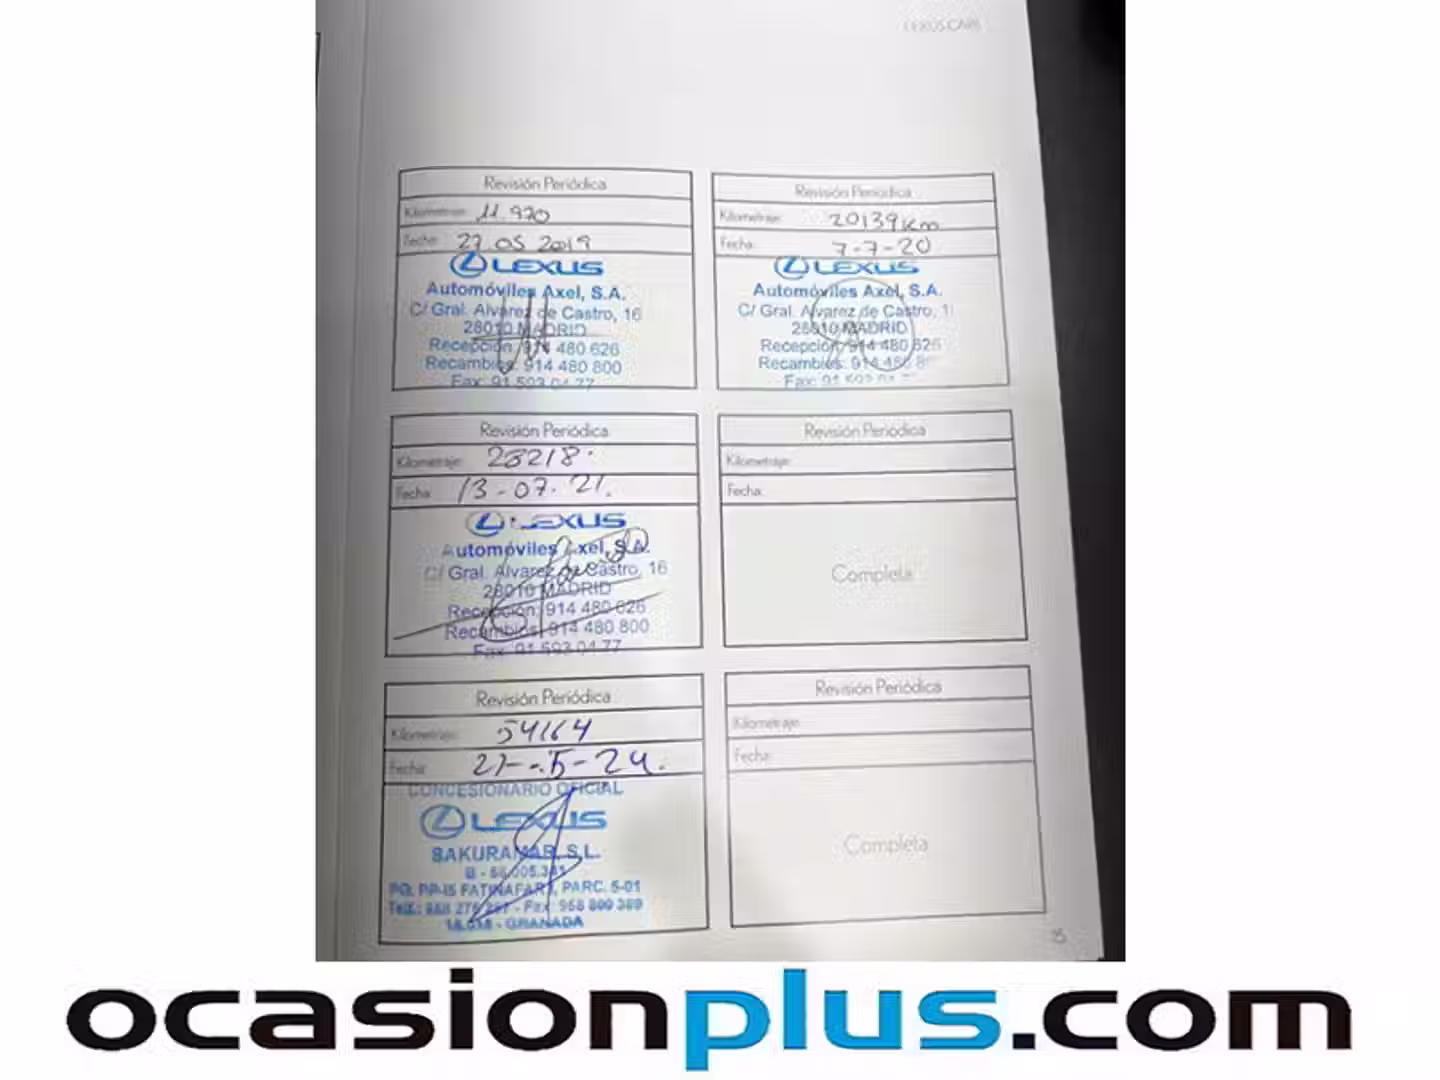 LEXUS CARE
Revisión Periódica
Kilometraje: 11.970
Fecha: 27 05 2019
LEXUS
Automóviles Axel, S.A.
C/ Gral. Alvarez de Castro, 16
28010 MADRID
Recepción: 914 480 626
Recambios: 914 480 800
Fax: 91 593 04 77
Revisión Periódica
Kilometraje: 20139 km
Fecha: 7-7-20
LEXUS
Automóviles Axel, S.A.
C/ Gral. Alvarez de Castro, 1
28010 MADRID
Recepción: 914 480 626
Recambios: 914 480 8
Fax: 91 593 04 7
Revisión Periódica
Kilometraje: 28218.
Fecha: 13-07-21.
LEXUS
Automóviles Axel, S.A.
C/ Gral. Alvarez de Castro, 16
28010 MADRID
Recepción: 914 480 626
Recambios: 914 480 800
Fax: 91 593 04 77
Revisión Periódica
Kilometraje:
Fecha:
Completa
Revisión Periódica
Kilometraje: 54164
Fecha: 27-5-24.
CONCESIONARIO OFICIAL
LEXUS
SAKURAMAR, S.L.
PARC. 5-01
Fax: 958 800 389
GRANADA
Revisión Periódica
Kilometraje:
Fecha:
Completa
ocasionplus.com